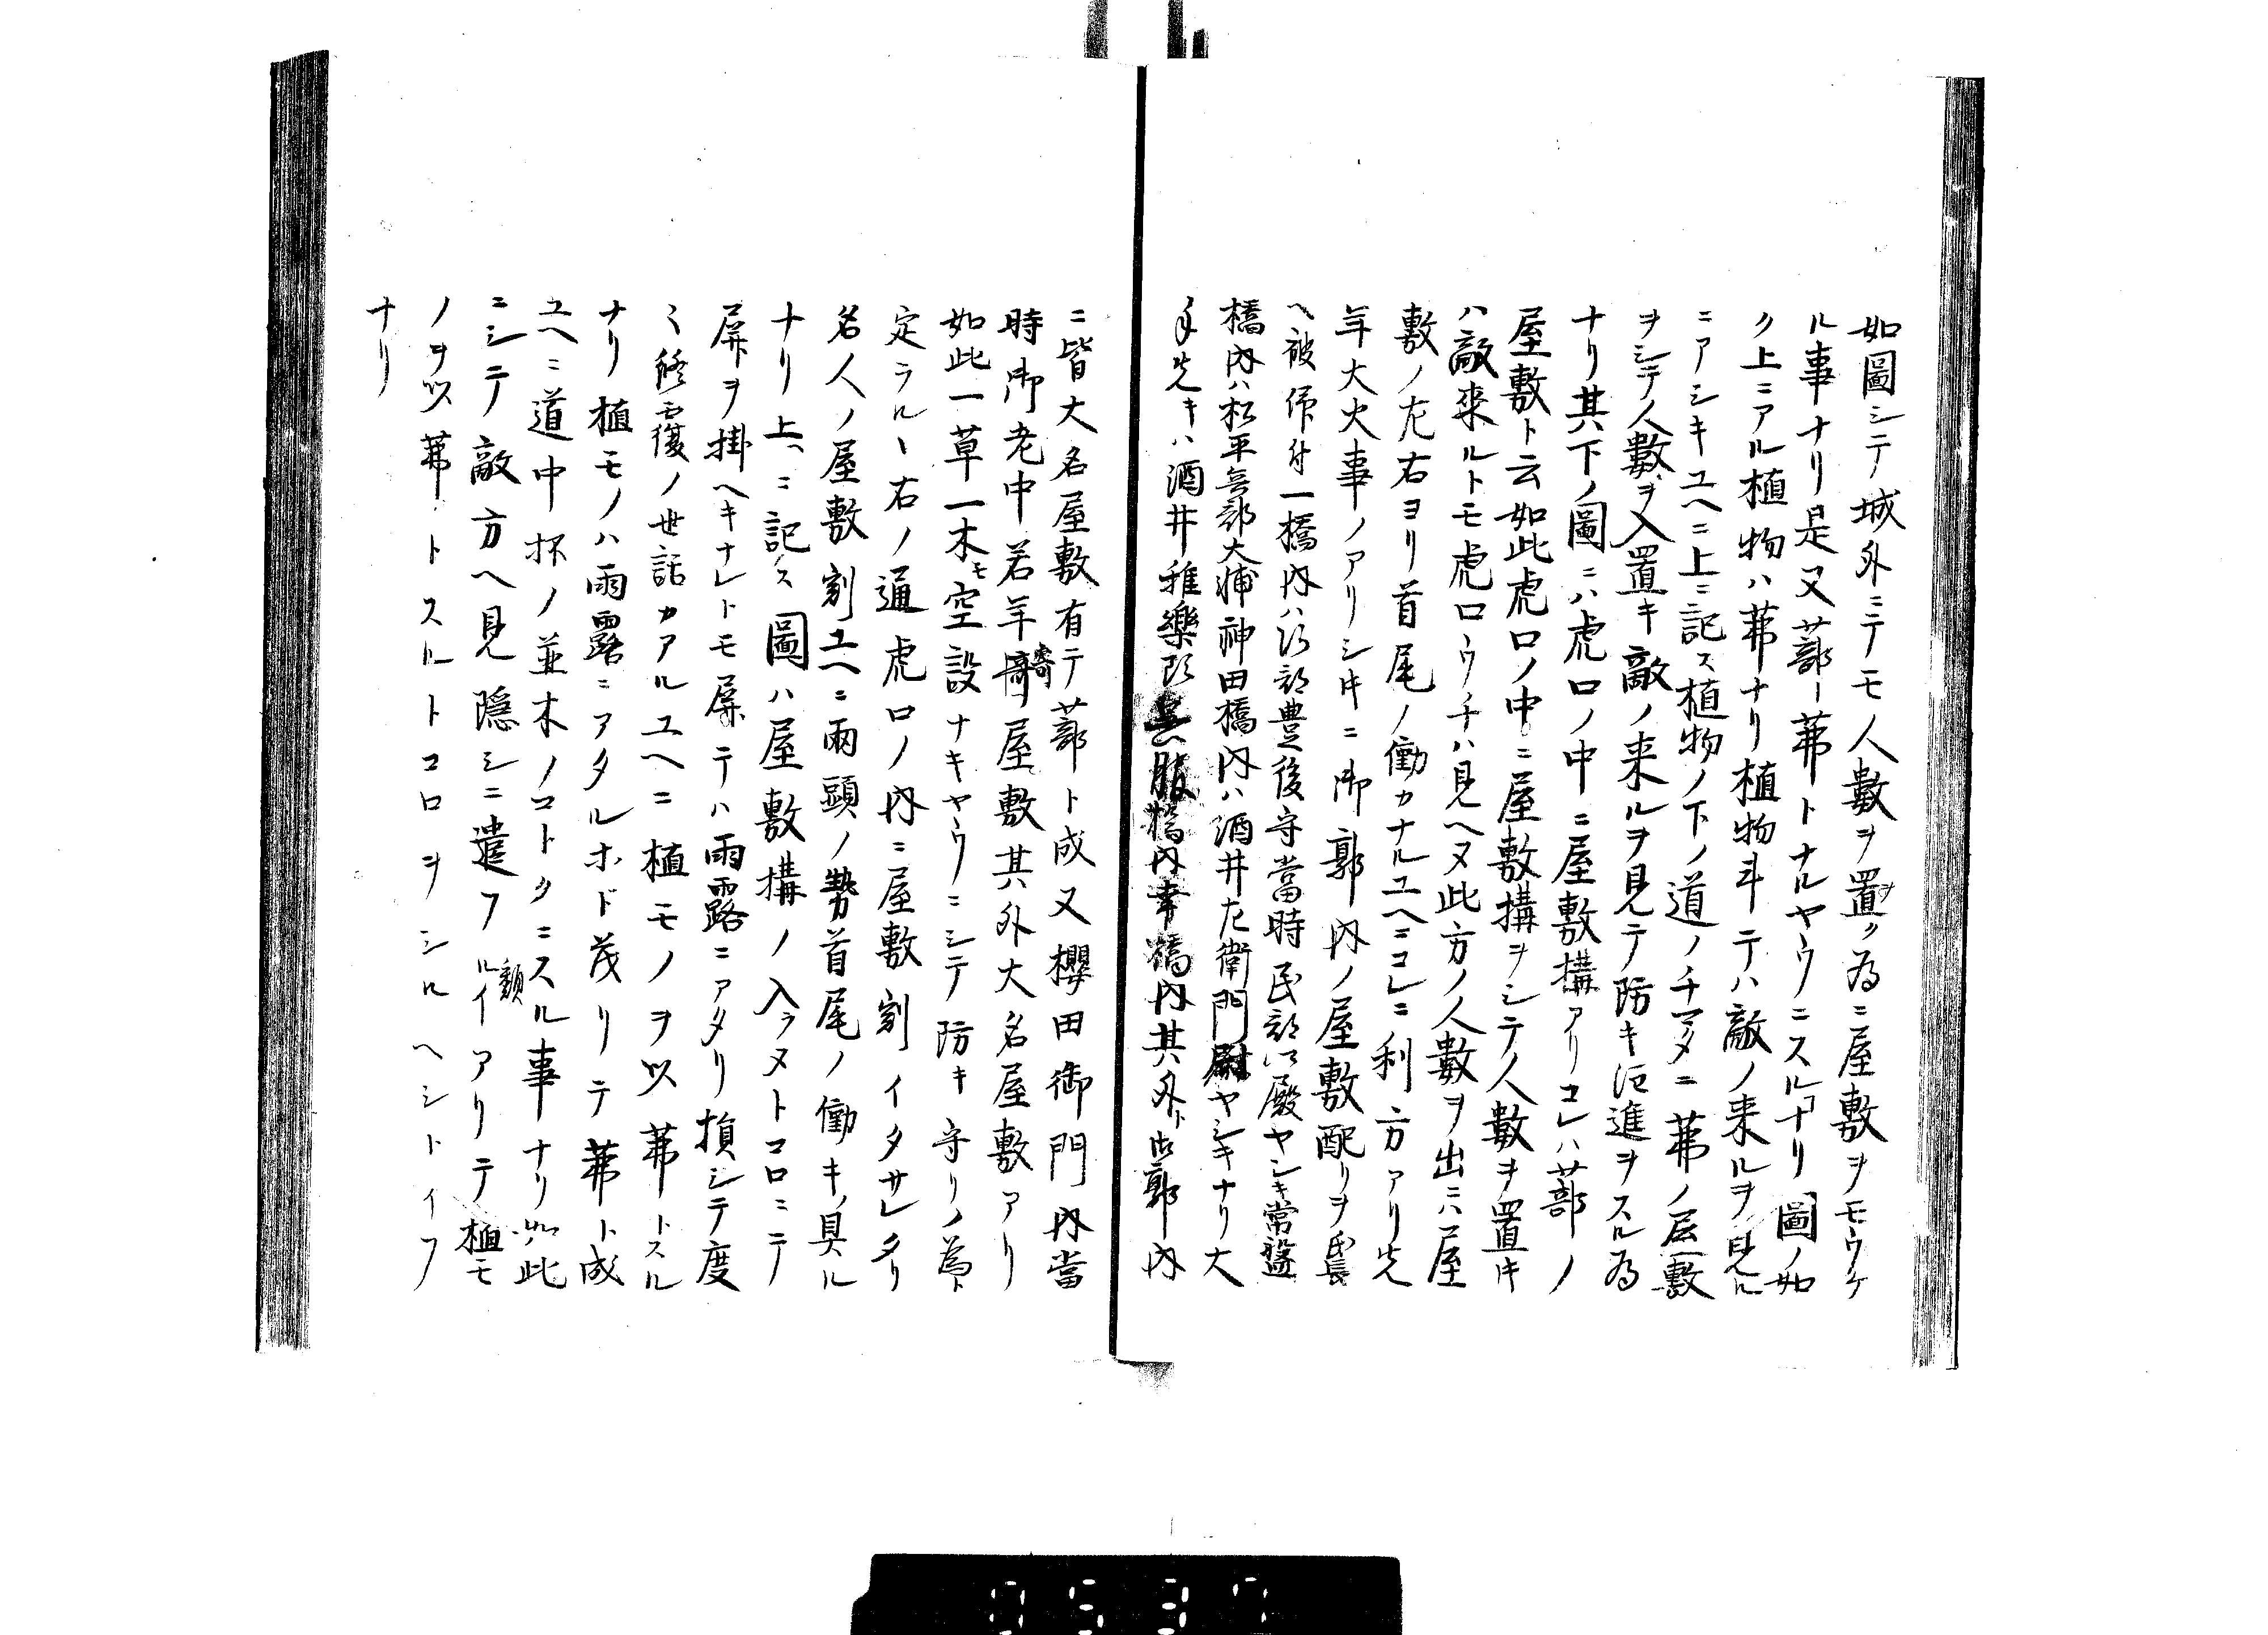 如圖シテ城外ニテモ人數ヲ置ク為ニ屋敷ヲモウケ
ル事ナリ是又蔀ー茀トナルヤウニスルヿナリ圖ノ如
ク上ニアル植物ハ茀ナリ植物斗テハ敵ノ来ルヲ見ル
ニアシキユヘニ上ニ記ス植物ノ下ノ道ノチマタニ茀ノ屋敷
ヲシテ人數ヲ入置キ敵ノ来ルヲ見テ防キ注進ヲスル為
ナリ其下ノ圖ニハ虎口ノ中ニ屋敷構アリコレハ蔀ノ
屋敷ト云如此虎口ノ中ニ屋敷構ヲシテ人數ヲ置キ
ハ敵来ルトモ虎口ウチハ見ヘヌ此方ノ人數ヲ出ニハ屋
敷ノ左右ヨリ首尾ノ働カナルユヘニコレニ利方アリ先
年大火事ノアリシ時ニ御郭内ノ屋敷配リヲ氏長
ヘ被仰付一橋内ハ治部豊後守當時民部 殿ヤシキ常盤
橋内ハ松平兵部大輔神田橋内ハ酒井左衛門尉ヤシキナリ大
手先キハ酒井雅樂頭呉服橋内幸橋内其外ト御郭内
ニ皆大名屋敷有テ蔀ト成又櫻田御門内當
時御老中若年寄屋敷其外大名屋敷アリ
如此一草一木モ空設ナキヤウニシテ防キ守リノ為ト
定ラルヽ右ノ通虎口ノ内ニ屋敷割イタサレタリ
名人ノ屋敷割ユヘニ兩頭ノ勢首尾ノ働キノ具ル
ナリ上ヘニ記ス圖ハ屋敷構ノ入ラヌトコロニテ
屏ヲ掛ヘキナレトモ屏テハ雨露ニアタリ損シテ度
〻修覆ノ世話カアルユヘニ植モノヲ以茀トスル
ナリ植モノハ雨露ニアタルホド茂リテ茀ト成
ユヘニ道中抔ノ並木ノコトクニスル事ナリ如此
ニシテ敵方ヘ見隠シニ遣フ類ルイアリテ植モ
ノヲ以茀トスルトコロヲシルヘシトイフ
ナリ